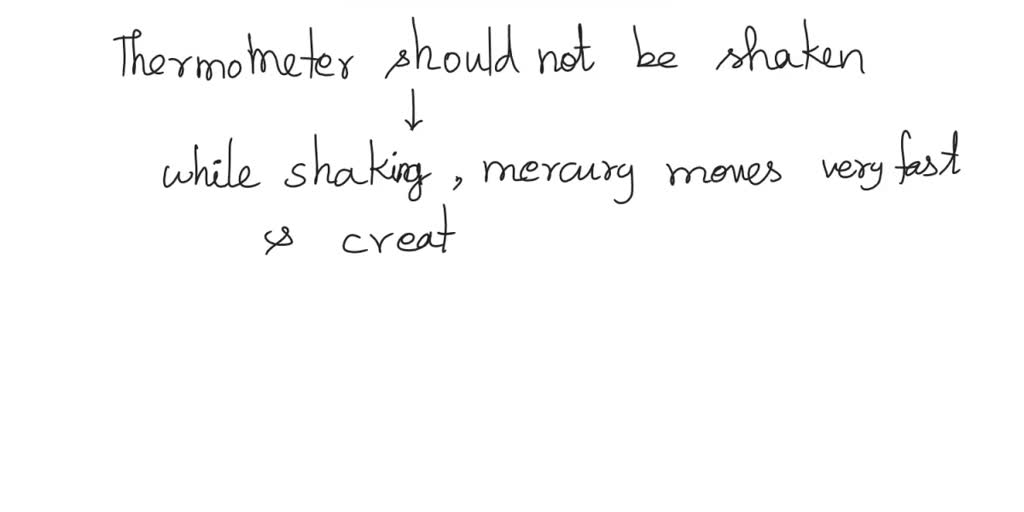 Thermometer should not be shaken
↓
while shaking, mercury moves very fast
& creat